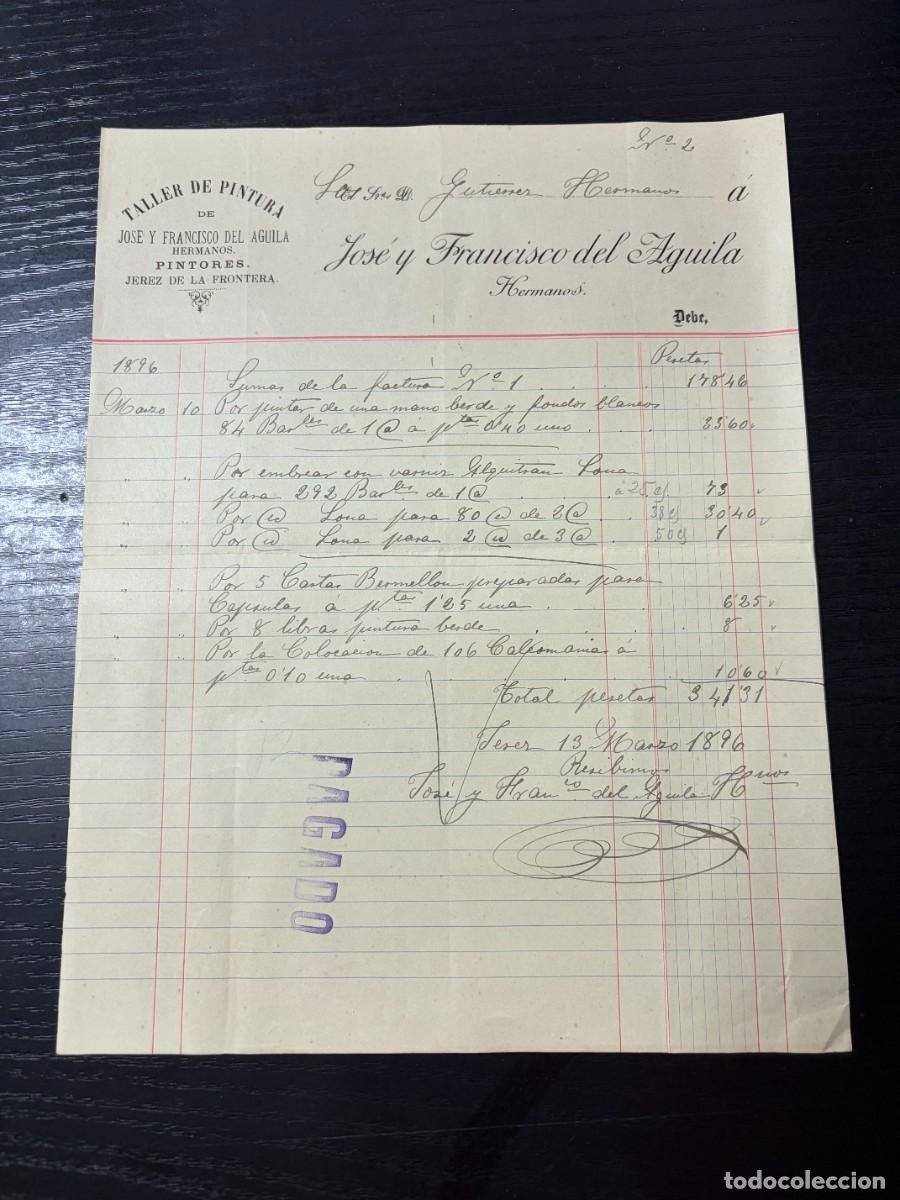 Nº 2
TALLER DE PINTURA
DE
JOSE Y FRANCISCO DEL AGUILA
HERMANOS.
PINTORES.
JEREZ DE LA FRONTERA.
Sres D. Gutierrez Hermanos á
José y Francisco del Aguila
Hermanos.
Debe,
1896 Pesetas
Sumas de la factura Nº 1 178'46
Marzo 10 Por pintar de una mano berde y fondos blancos
84 Barles de 1@ á ptas 0'40 uno 33'60
Por embrear con varniz Alquitran Lona
para 292 Barles de 1@ á 25 c/ 73
" " Por Lona para 80 de 2@ 38 c/ 30'40
" " Por Lona para 2 de 3@ 50 c/ 1
Por 5 Cartas Bermellon preparadas para
Capsulas á ptas 1'25 una 6'25
" " Por 8 libras pintura berde 8
" " Por la Colocacion de 106 Calcomanias á
ptas 0'10 una 10'60
Total pesetas 341'31
Jerez 13 Marzo 1896
Resibimos
José y Franco del Aguila Hnos
PAGADO
todocoleccion